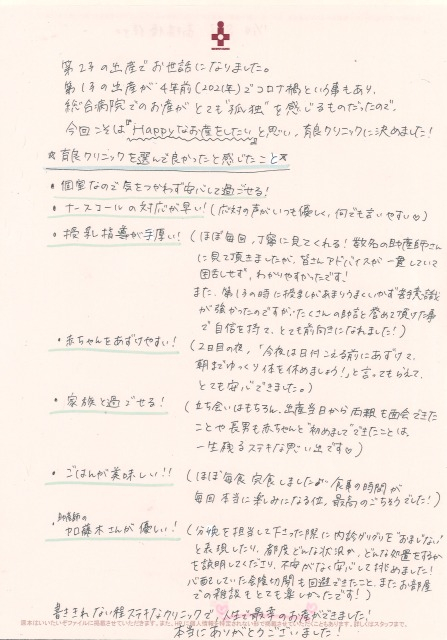 第2子の出産でお世話になりました。
第1子の出産が4年前(2021年)でコロナ禍という事もあり、
総合病院でのお産がとても"孤独"を感じるものだったので、
今回こそは『Happyなお産をしたい』と思い、育良クリニックに決めました!
*育良クリニックを選んで良かったと感じたこと*
・個室なので気をつかわず安心して過ごせる!
・ナースコールの対応が早い!(応対の声がいつも優しく、何でも言いやすい♡)
・授乳指導が手厚い!(ほぼ毎回、丁寧に見てくれる!数名の助産師さん
に見て頂きましたが、皆さんアドバイスが一貫していて
困惑せず、わかりやすかったです!
また、第1子の時に授乳があまりうまくいかず苦手意識
が強かったのですが、たくさんの助言と誉めて頂けた事
で自信を持て、とても前向きになれました!)
・赤ちゃんをあずけやすい!(2日目の夜、「今夜は日付こえる前にあずけて、
朝までゆっくり体を休めましょう!」と言ってもらえて、
とても安心できました。)
・家族と過ごせる!(立ち会いはもちろん、出産当日から両親も面会できた
ことや長男も赤ちゃんと"初めまして"できたことは、
一生残るステキな思い出です♡)
・ごはんが美味しい!!(ほぼ毎食完食しましたが食事の時間が
毎回本当に楽しみになる位、最高のごちそうでした!)
・助産師の
加藤木さんが優しい!(分娩を担当して下さった際に内診グリグリを"おまじない"
と表現したり、都度どんな状況か、どんな処置をするか
を説明してくださり、不安がなく安心して挑めました!
心配していた会陰切開も回避できたこと、またお部屋
での雑談もとても楽しかったです!)
書ききれない程ステキなクリニックで、人生で最幸のお産ができました!
本当にありがとうございました!